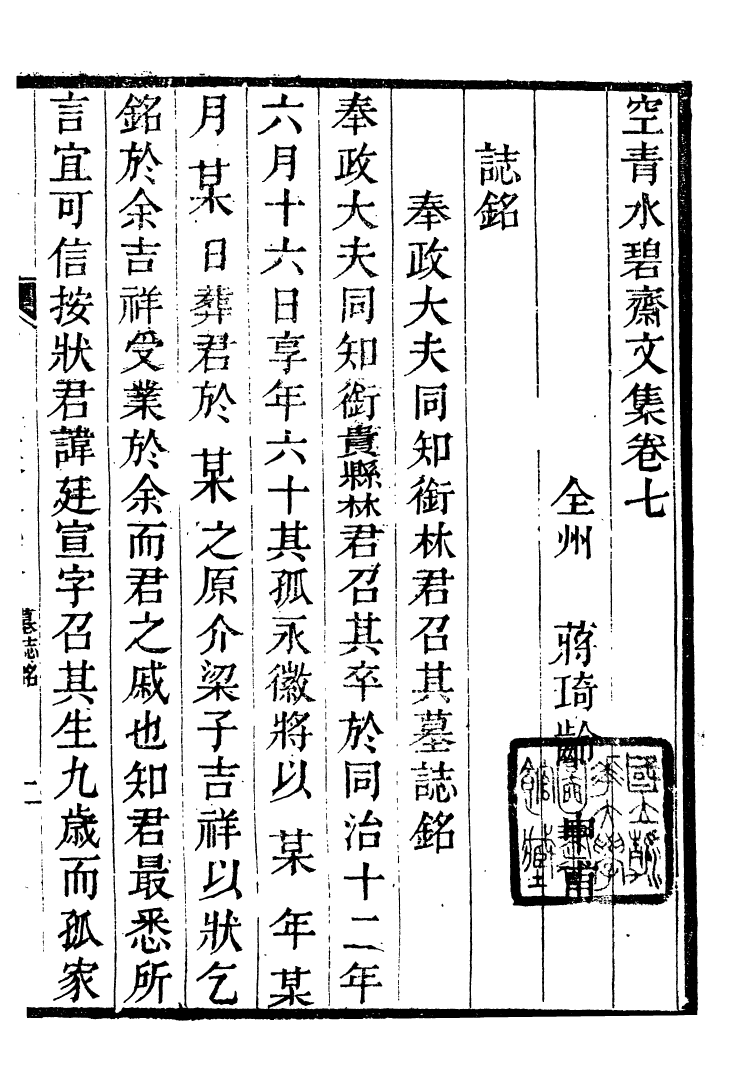 空青水碧齋文集卷七
全州　蔣琦齡　申甫
誌銘
奉政大夫同知銜林君召其墓誌銘
奉政大夫同知銜貴縣林君召其卒於同治十二年
六月十六日享年六十其孤永徽將以某年某
月某日葬君於某之原介梁子吉祥以狀乞
銘於余吉祥受業於余而君之戚也知君最悉所
言宜可信按狀君諱廷宣字召其生九歲而孤家
墓志銘